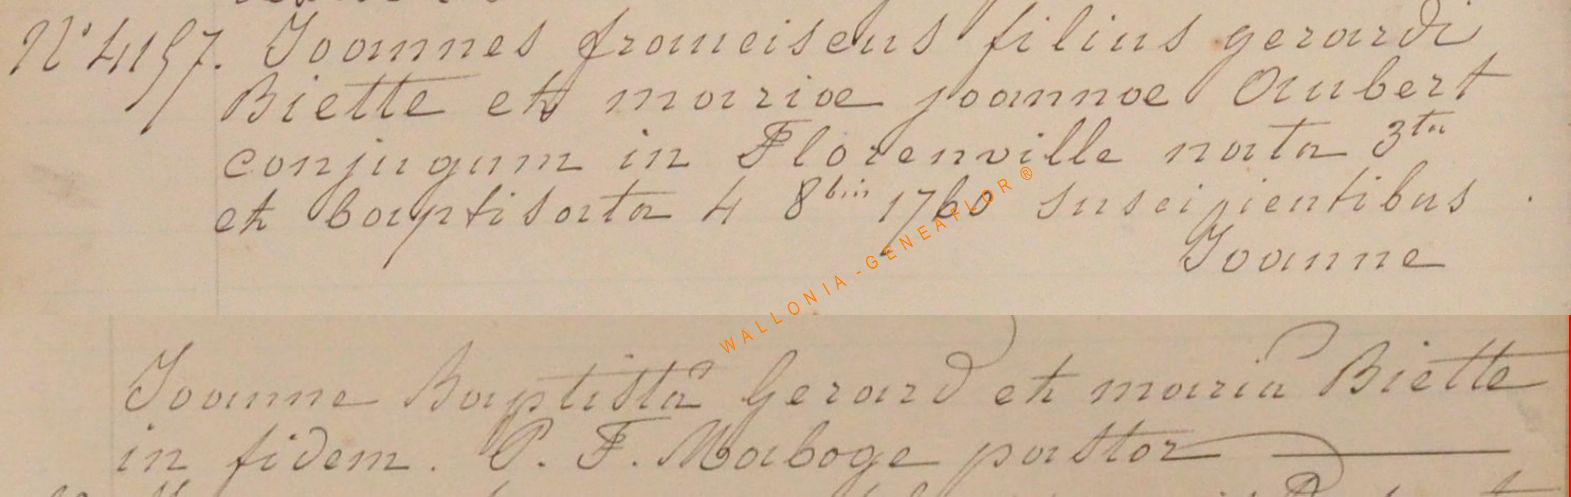 N° 4157. Joannes franciscus filius gerardi
Biette et mariae joannae Aubert
conjugum in Florenville nata 3ta
et baptisata 4 8bris 1760 suscipientibus
Joanne
WALLONIA-GENEAFLOR®
Joanne Baptista Gerard et maria Biette
in fidem. P. F. Maboge pastor